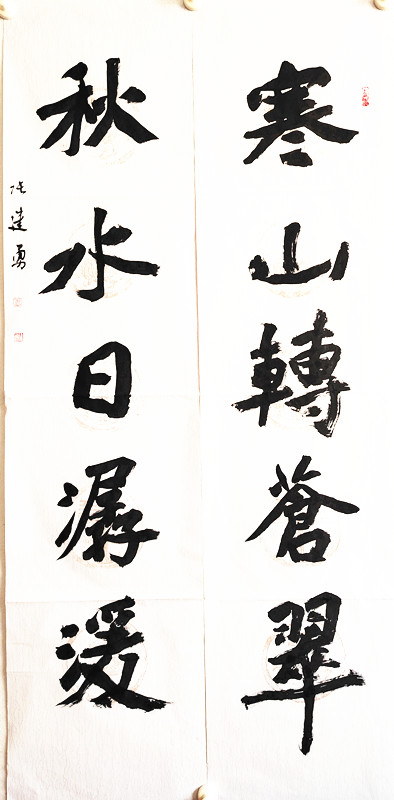 寒山轉蒼翠
秋水日潺湲
张建勇